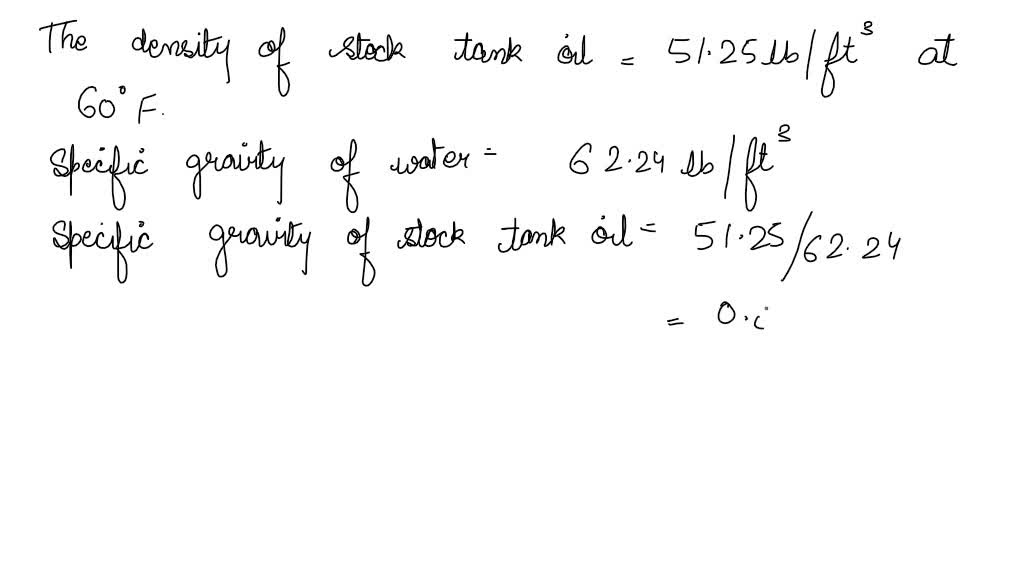 The density of stock tank oil = 51.25 lb/ft³ at
60° F.
Specific gravity of water = 62.24 lb/ft³
Specific gravity of stock tank oil = 51.25/62.24
= 0.